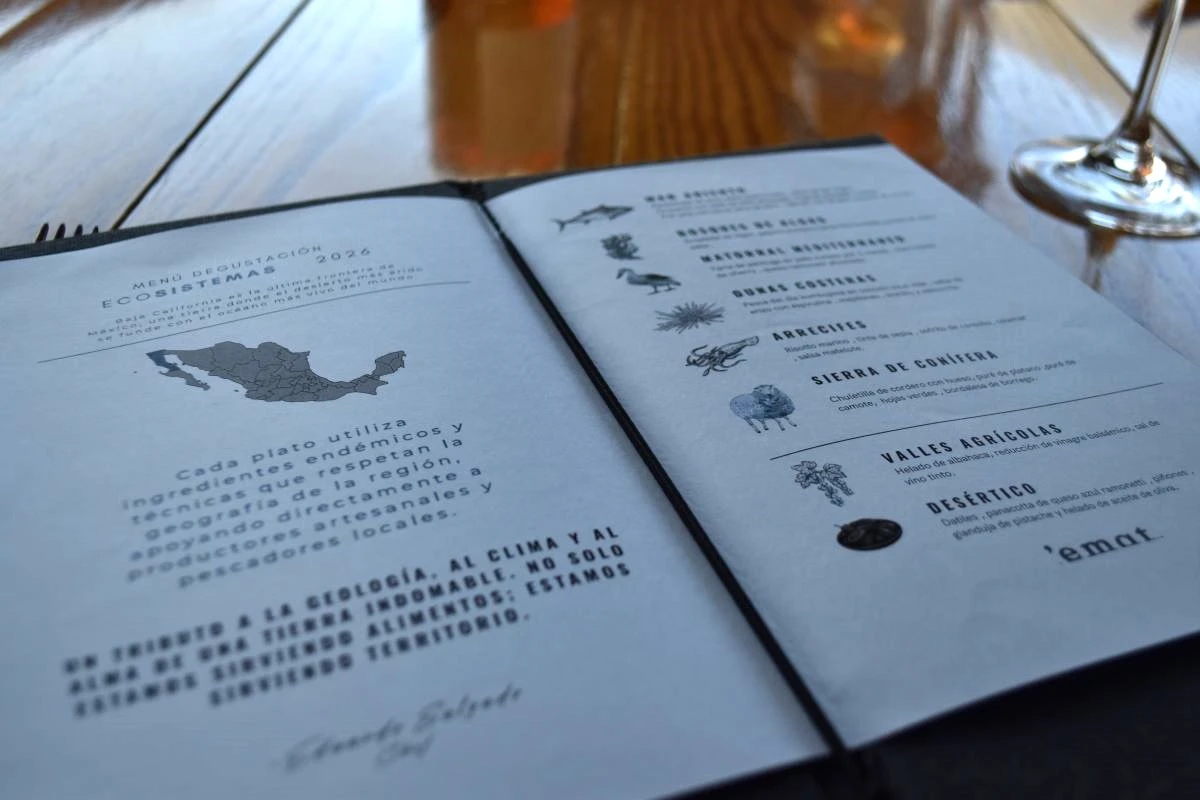 MENÚ DEGUSTACIÓN
ECOSISTEMAS 2026
Baja California es la última frontera de
México, una tierra donde el desierto más árido
se funde con el océano más vivo del mundo.
Cada plato utiliza
ingredientes endémicos y
técnicas que respetan la
geografía de la región,
apoyando directamente a
productores artesanales y
pescadores locales.
UN TRIBUTO A LA GEOLOGÍA, AL CLIMA Y AL
ALMA DE UNA TIERRA INDOMABLE. NO SOLO
ESTAMOS SIRVIENDO ALIMENTOS; ESTAMOS
SIRVIENDO TERRITORIO.
Eduardo Salgado
Chef
MAR ABIERTO
BOSQUES DE ALGAS
MATORRAL MEDITERRANEO
DUNAS COSTERAS
ARRECIFES
Risotto marino , tinte de sepia , sofrito de , calamar
, salsa matelote.
SIERRA DE CONÍFERA
Chuletilla de cordero con hueso, puré de platano ,puré de
camote, hojas verdes , bordalesa de borrego.
VALLES AGRÍCOLAS
Helado de albahaca, reducción de vinagre balsámico, sal de
vino tinto.
DESÉRTICO
Datiles , panacotta de queso azul ramonetti , piñones ,
ganduja de pistache y helado de aceite de oliva.
'emat